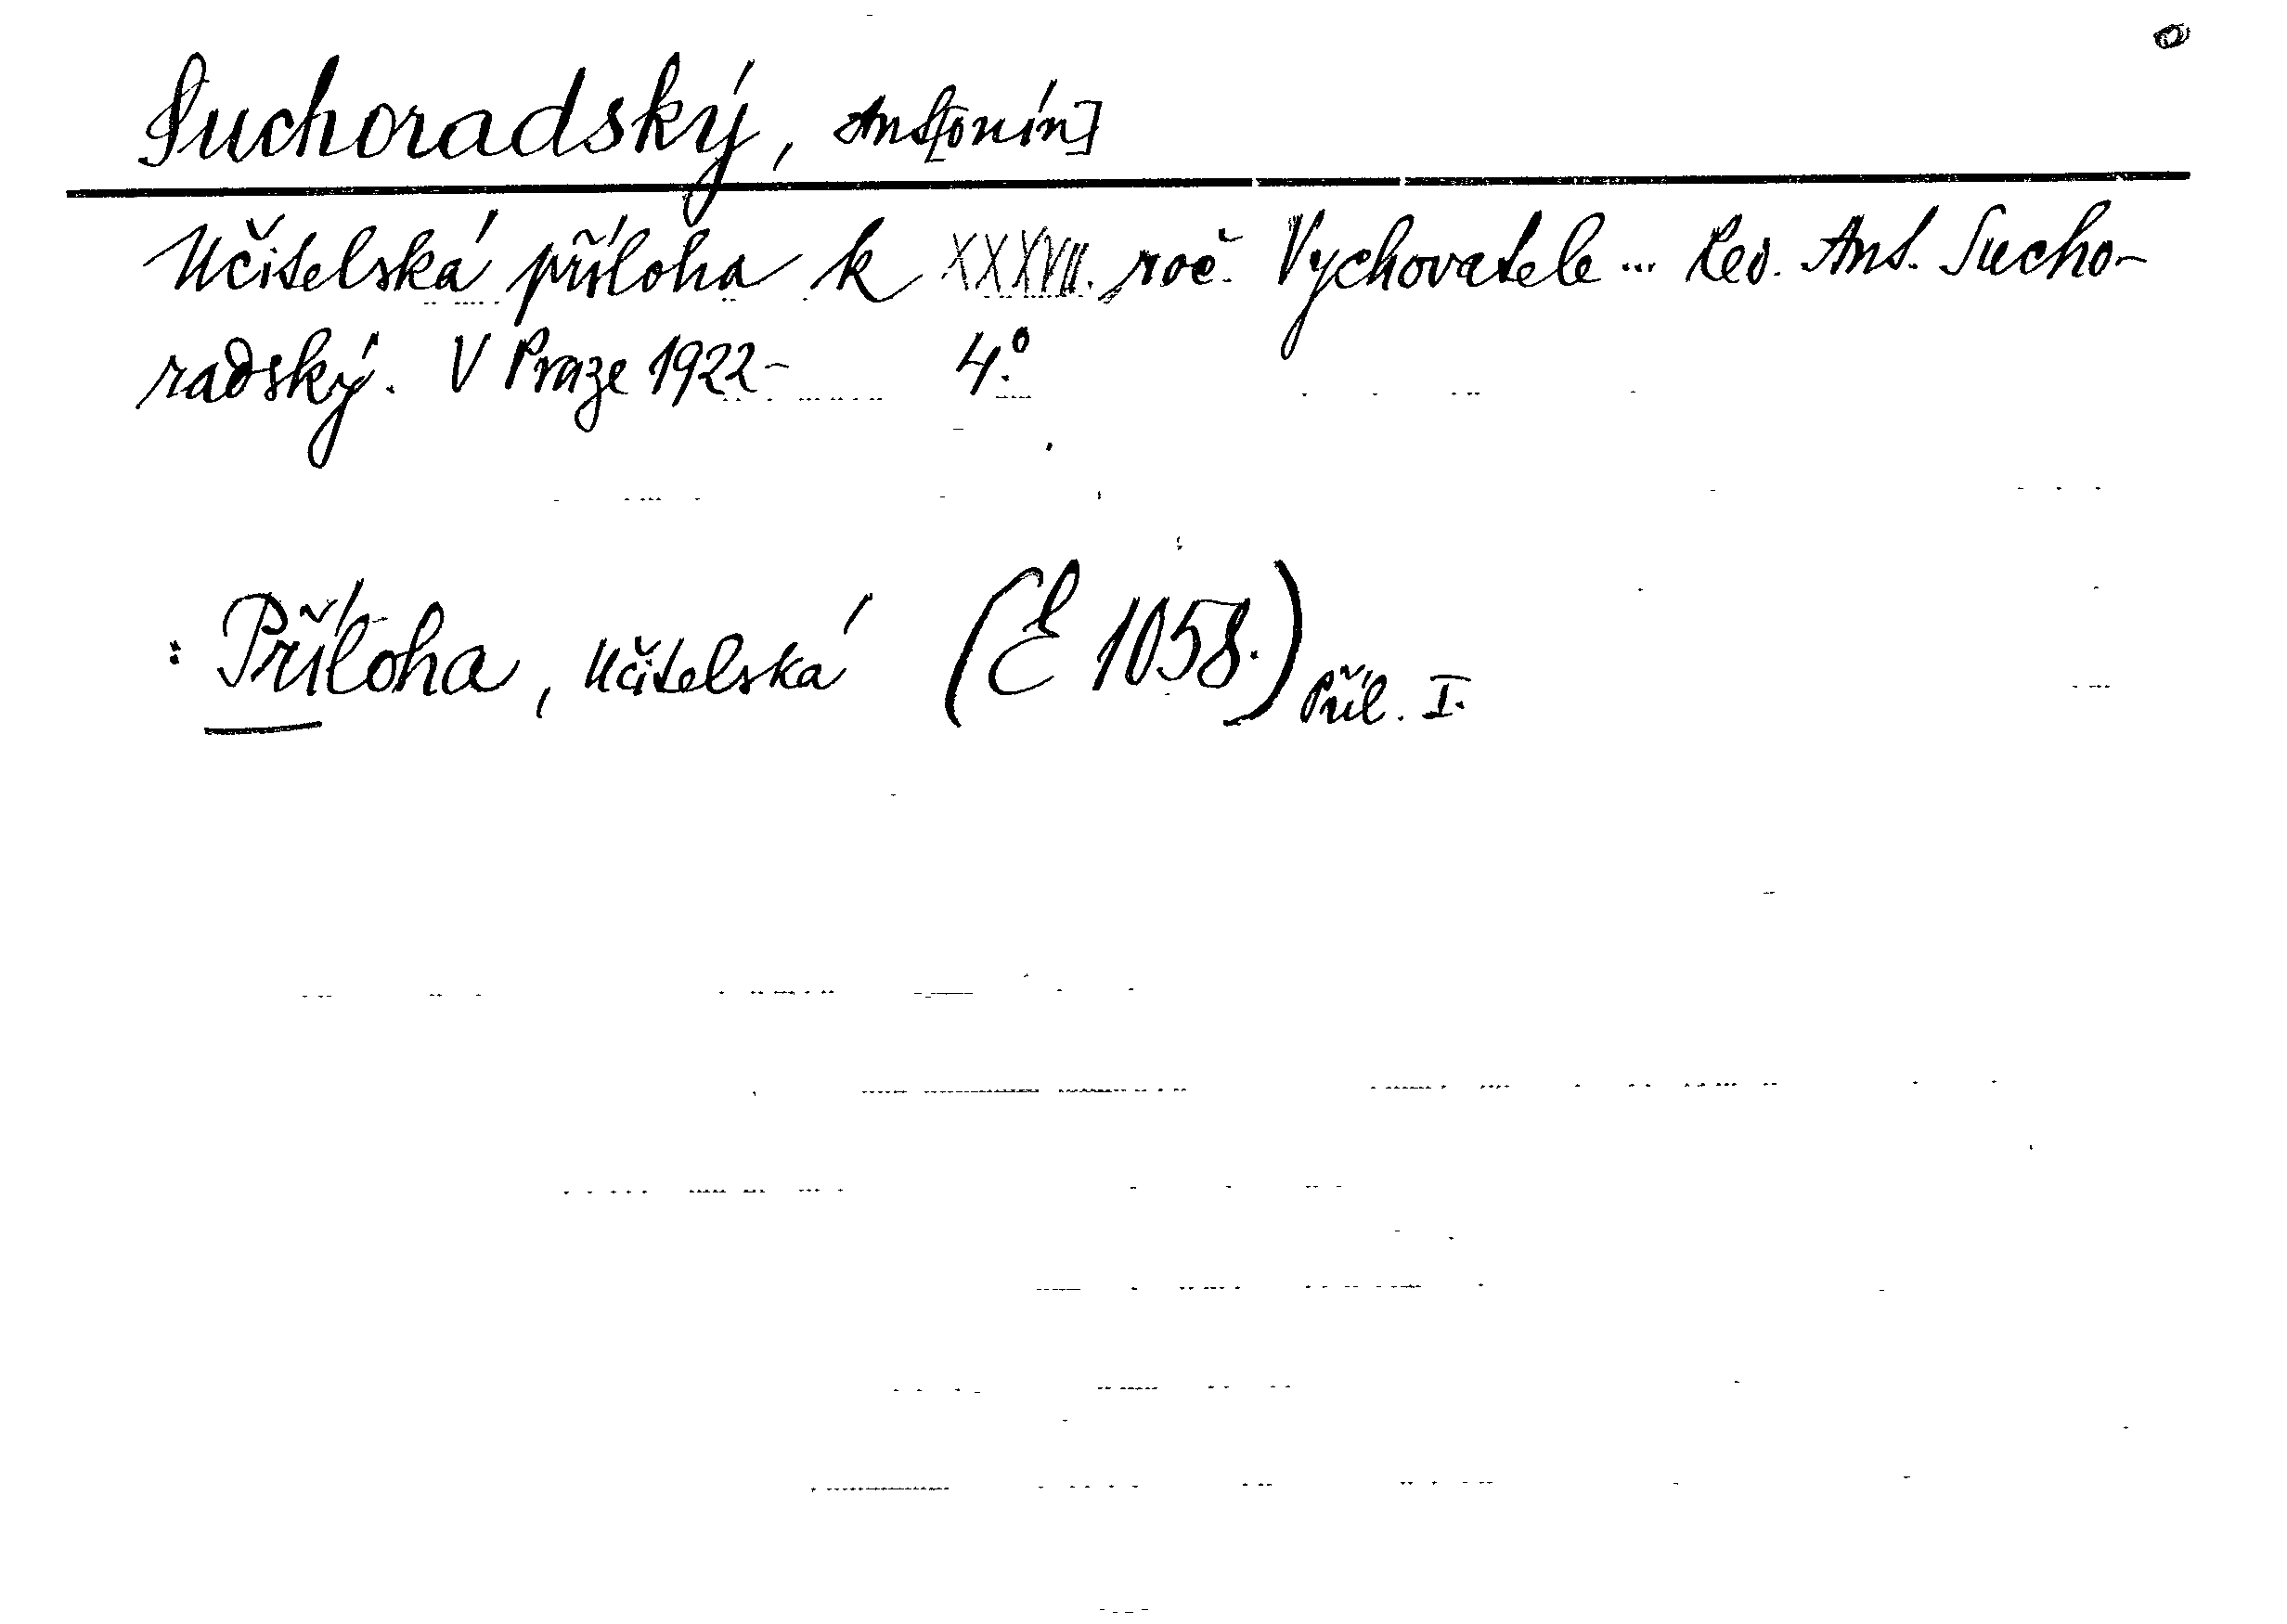 Suchoradský, Ant[onín]
Učitelská příloha k XXXVII. roč. Vychovatele ... Red. Ant. Sucho-
radský. V Praze 1922- 4.°
: Příloha, učitelská (E 1058.) Příl. I.